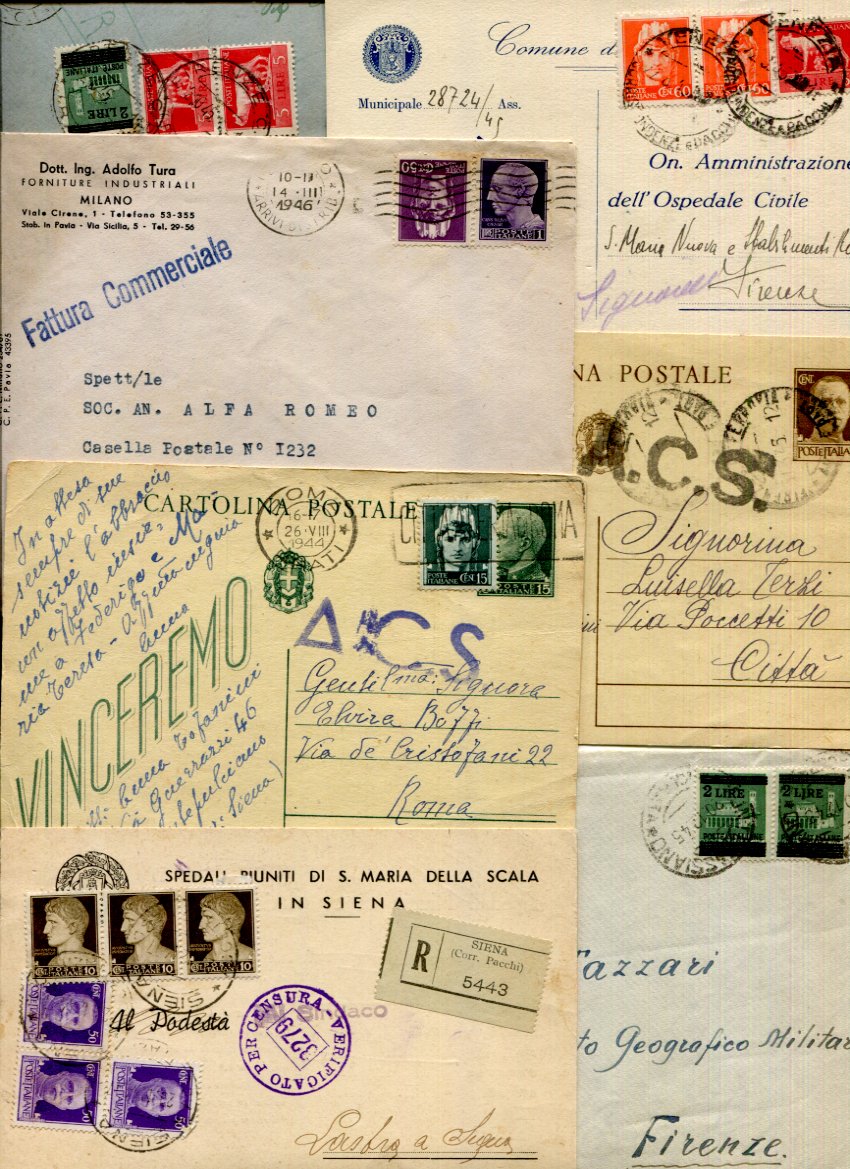 2 LIRE
POSTE ITALIANE
5
LIRE 5
Comune d
Municipale 28724/45 Ass.
POSTE ITALIANE CEN. 60
VENEZIA
On. Amministrazione
dell'Ospedale Civile
S. Maria Nuova e Stabilimenti
Firenze
Dott. Ing. Adolfo Tura
FORNITURE INDUSTRIALI
MILANO
Viale Cirene, 1 - Telefono 53-355
Stab. in Pavia - Via Sicilia, 5 - Tel. 29-56
C. P. E. Pavia 43395
10-11
14 - III
1946
ARRIVI DISTRIB.
0,50
POSTE ITALIANE 1
Fattura Commerciale
Spett/le
SOC. AN. ALFA ROMEO
Casella Postale N° I232
NA POSTALE
CENT
POSTE ITALIANE
FERROVIA
A.C.S.
Signorina
Luisella Terzi
Via Poccetti 10
Città
CARTOLINA POSTALE
ROMA
26. VIII
1944
POSTE ITALIANE CEN 15
POSTE ITALIANE
15
A.C.S
In attesa
sempre di sue
notizie l'abbraccio
VINCEREMO
Gentilma: Signora
Elvira Bozzi
Via de' Cristofani 22
Roma
Via Guerrazzi 46
Siena)
2 LIRE
POSTE ITALIANE
2 LIRE
Tazzari
to Geografico Militar
Firenze.
SPEDALI RIUNITI DI S. MARIA DELLA SCALA
IN SIENA
10 POSTE ITALIANE 10
R
SIENA
(Corr. Pacchi)
5443
SIENA
CENT 50
POSTE ITALIANE
Al Podestà
Sindaco
VERIFICATO PER CENSURA
3279
50
Lastra a Signa